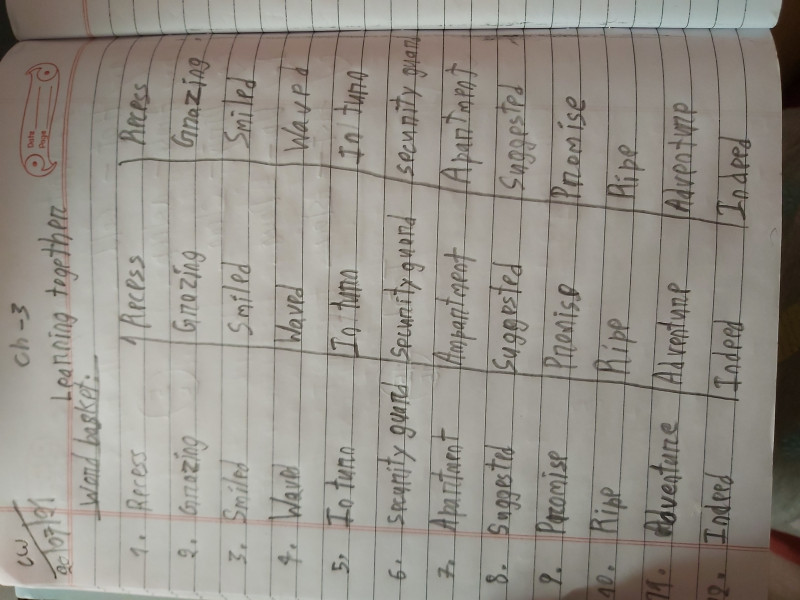 CW
20/07/21
Ch-3
Date
Page
Learning together
Word basket:
1. Recess Recess Recess
2. Grazing Grazing Grazing
3. Smiled Smiled Smiled
4. Waved Waved Waved
5. In turn In turn In turn
6. security guard security guard security guard
7. Apartment Ampartment Apartment
8. Suggested Suggested Suggested
9. Promise Promise Promise
10. Ripe Ripe Ripe
11. Adventure Adventure Adventure
12. Indeed Indeed Indeed